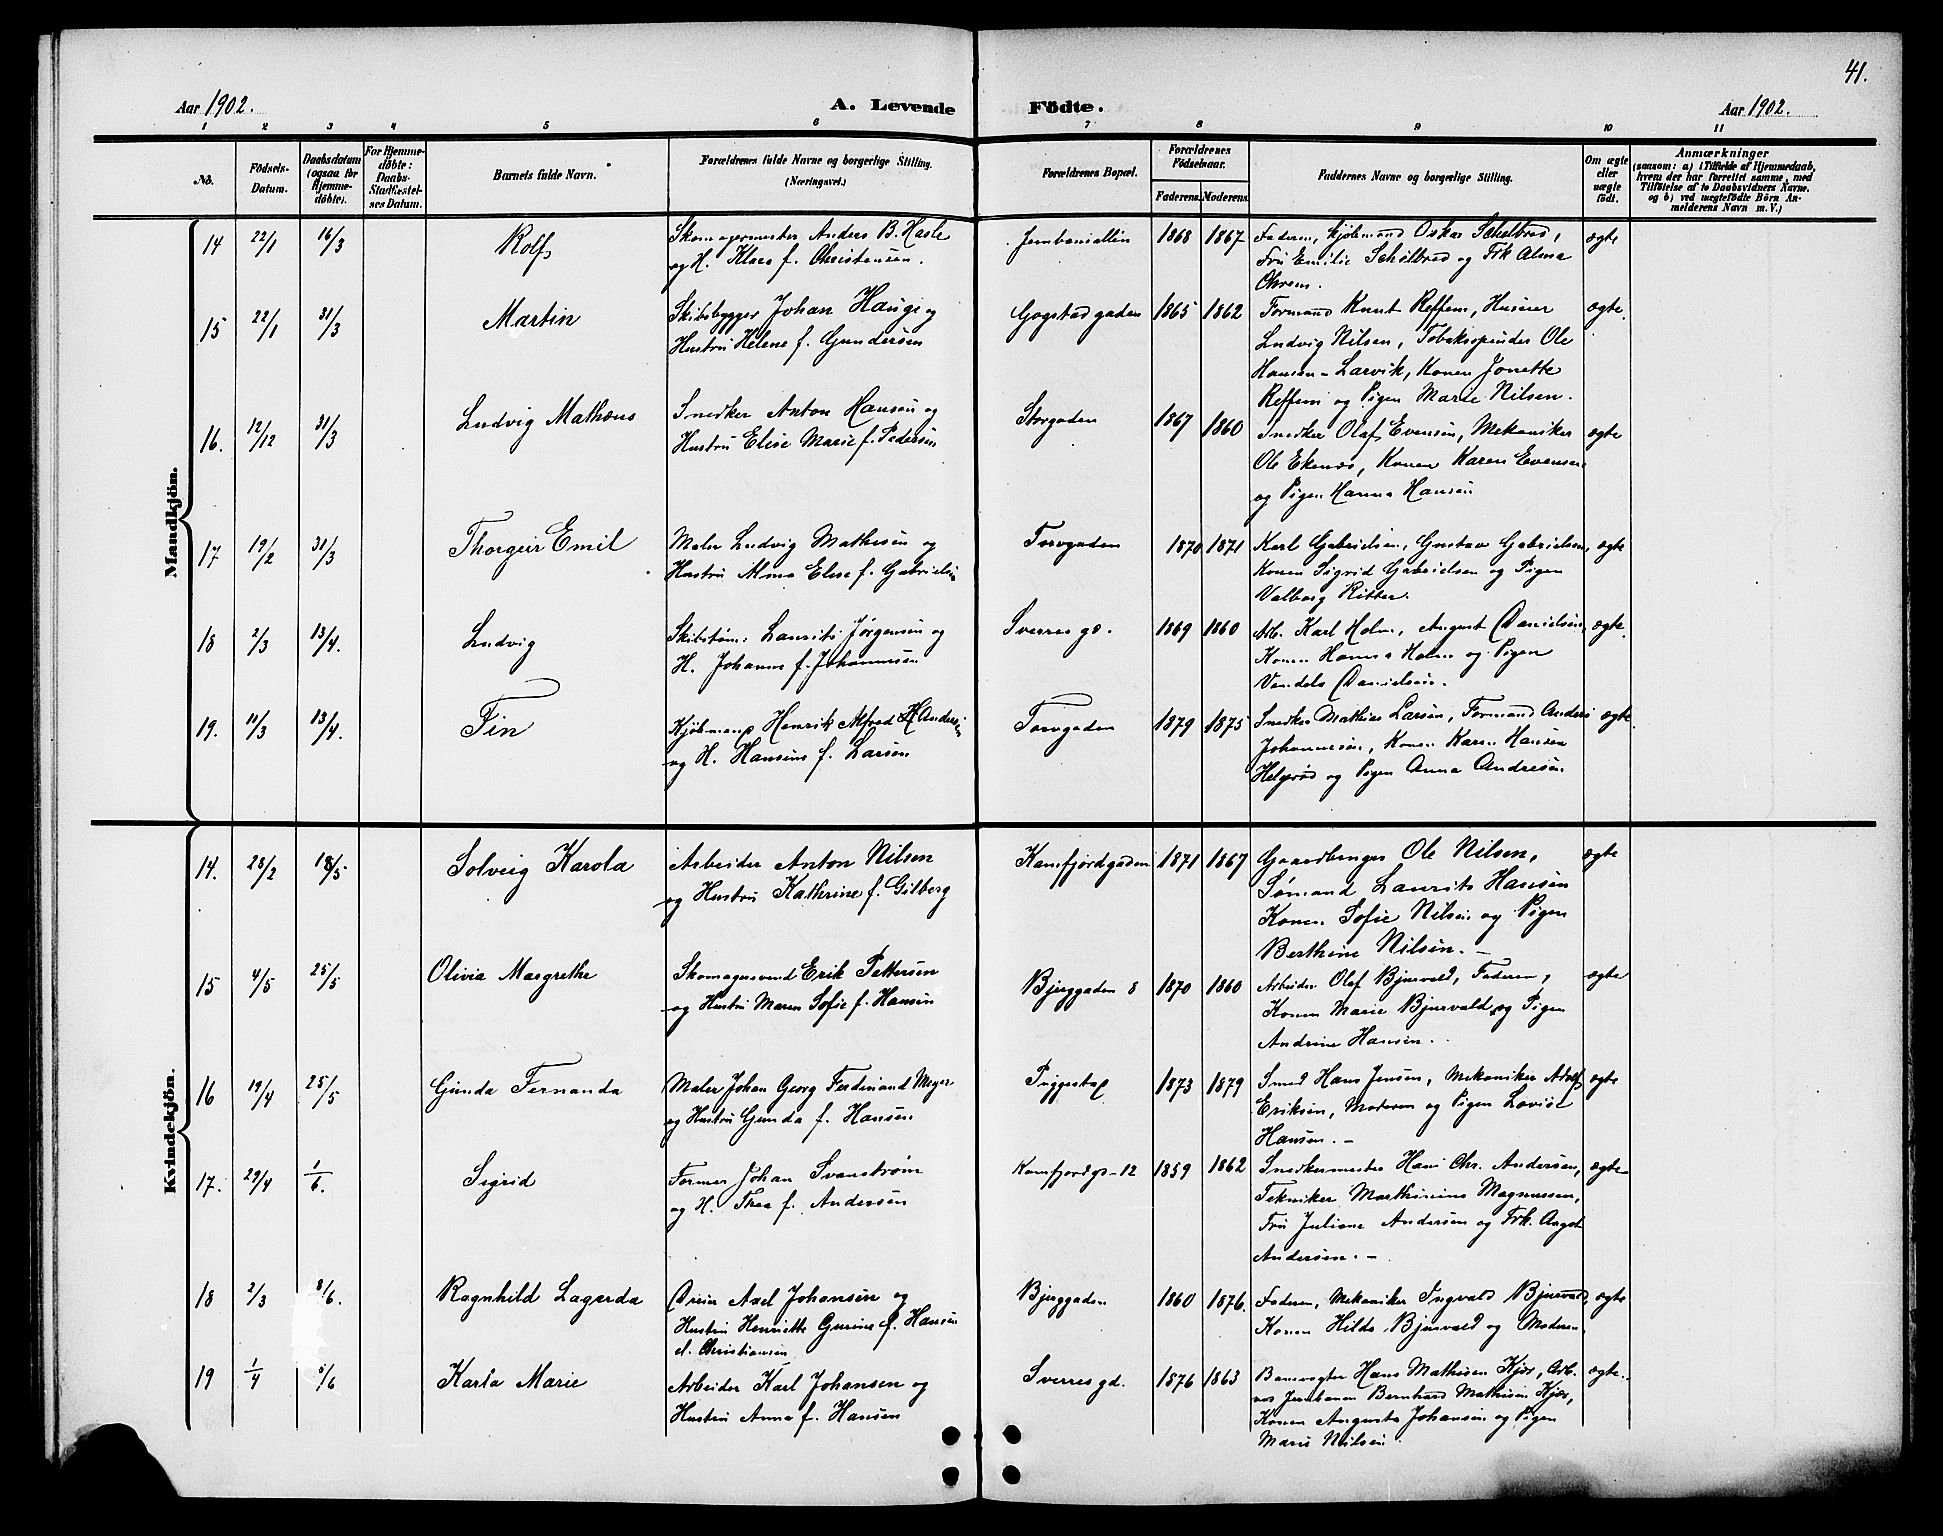 41.
Aar 1902.
A. Levende Födte.
Aar 1902.
1 2 3 4 5 6 7 8 9 10 11
No.
Födsels-
Datum.
Daabsdatum
(ogsaa for
Hjemme-
døbte).
For Hjemme-
døbte:
Daabs-
Stadfæstel-
ses Datum.
Barnets fulde Navn.
Forældrenes fulde Navne og borgerlige Stilling.
(Næringsvei.)
Forældrenes Bopæl.
Forældrenes
Fødselsaar.
Faderens. Moderens.
Faddernes Navne og borgerlige Stilling.
Om ægte
eller
uægte
født.
Anmærkninger
(saasom: a) i Tilfælde af Hjemmedaab,
hvem der har forrettet samme, med
Tilføielse af to Daabsvidners Navne.
og b) ved uægtefødte Börn An-
melderens Navn m. V.)
Mandkjön.
14 22/1 16/3 Rolf
Skomagermester Anders B. Hasle
og H. Klara f. Christensen.
Jernbanealléen 1868 1867
Faderen, Kjøbmand Oskar Schølbred,
Fru Emilie Schølbred og Frk Alma
Ohrem.
ægte
15 22/1 31/3 Martin
Skibsbygger Johan Hauge og
Hustru Helene f. Gundersen
Gogstadgaden 1865 1862
Formand Knut Reffem, Huseier
Ludvig Nilsen, Tobakspinder Ole
Hansen - Larvik, Konen Jonette
Reffem og Pigen Marie Nilsen.
ægte.
16. 12/12 31/3 Ludvig Mathæus
Snedker Anton Hansen og
Hustru Elise Marie f. Pedersen
Storgaden 1867 1860
Snedker Olaf Evensen, Mekaniker
Ole Ekenæs, Konen Karen Evensen
og Pigen Hanna Hansen
ægte
17 19/2 31/3 Thorgeir Emil
Maler Ludvig Mathisen og
Hustru Alma Elise f. Gabrielsen
Torvgaden 1870 1871
Karl Gabrielsen, Gustav Gabrielsen,
Konen Sigrid Gabrielsen og Pigen
Valborg Ritter.
ægte
18 2/3 13/4. Ludvig
Skibstøm: Laurits Jørgensen og
H. Johanne f. Johannesen
Sverres gd. 1869 1860
Arb. Karl Holm, August Danielsen,
Konen Hanna Holm og Pigen
Vandela Danielsen.
ægte.
19. 11/3 13/4. Fin
Kjøbmand Henrik Alfred H. Andersen
og H. Hansine f. Larsen
Torvgaden 1879 1875
Snedker Mathias Larsen, Formand Anders
Johannesen, Konen Karen Hansen
Helgerød og Pigen Anna Andresen
ægte.
Kvindekjön.
14. 28/2 18/5 Solveig Karola
Arbeider Anton Nilsen
og Hustru Kathrine f. Gilberg
Kamfjordgaden 1871 1867
Gaardbruger Ole Nilsen,
Sømand Laurits Hansen
Konen Sofie Nilsen og Pigen
Berthine Nilsen. -
ægte
15 4/5 25/5 Olivia Margrethe
Skomagersvend Erik Pettersen
og Hustru Maren Sofie f. Hansen
Bjerggaden 8 1870 1860
Arbeider Olaf Bjurvald, Faderen,
Konen Marie Bjurvald og Pigen
Andrine Hansen.
ægte
16 19/4 25/5 Gunda Fernanda
Maler Johan Georg Ferdinand Meyer
og Hustru Gunda f. Hansen
Piggestap 1873 1879
Smed Hans Jensen, Mekaniker Adolf
Eriksen, Moderen og Pigen Lovise
Hansen. -
ægte
17. 29/4 1/6. Sigrid
Former Johan Svanstrøm
og H. Thea f. Andersen
Kamfjordgd - 12 1859 1862
Snedkermester Hans Chr. Andersen,
Tekniker Marthinius Magnussen,
Fru Juliane Andersen og Frk. Aagot
Andersen. -
ægte
18 2/3 8/6. Ragnhild Lagerda
Axel Johansen og
Hustru Henriette Gurine f. Hansen
Christiansen
Bjerggaden 1860 1876.
Faderen, Mekaniker Ingvald Bjurvald,
Konen Hilda Bjurvald og Moderen.
ægte
19 1/4 /6 Karla Marie
Arbeider Karl Johansen og
Hustru Anna f. Hansen
Sverres gd. 1876 1863
Banevogter Hans Mathisen Kjær, Arb.
ved Jernbanen Bernhard Mathisen Kjær,
Konen Augusta Johansen og Pigen
Marie Nilsen
ægte.